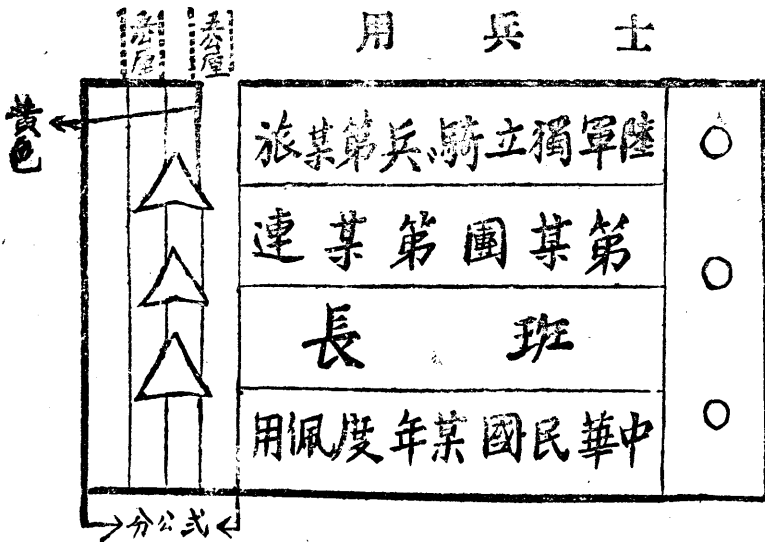 士兵用
五公厘
五公厘
陸軍獨立騎兵第某旅
第某團第某連
班長
中華民國某年度佩用
黃色
弍公分